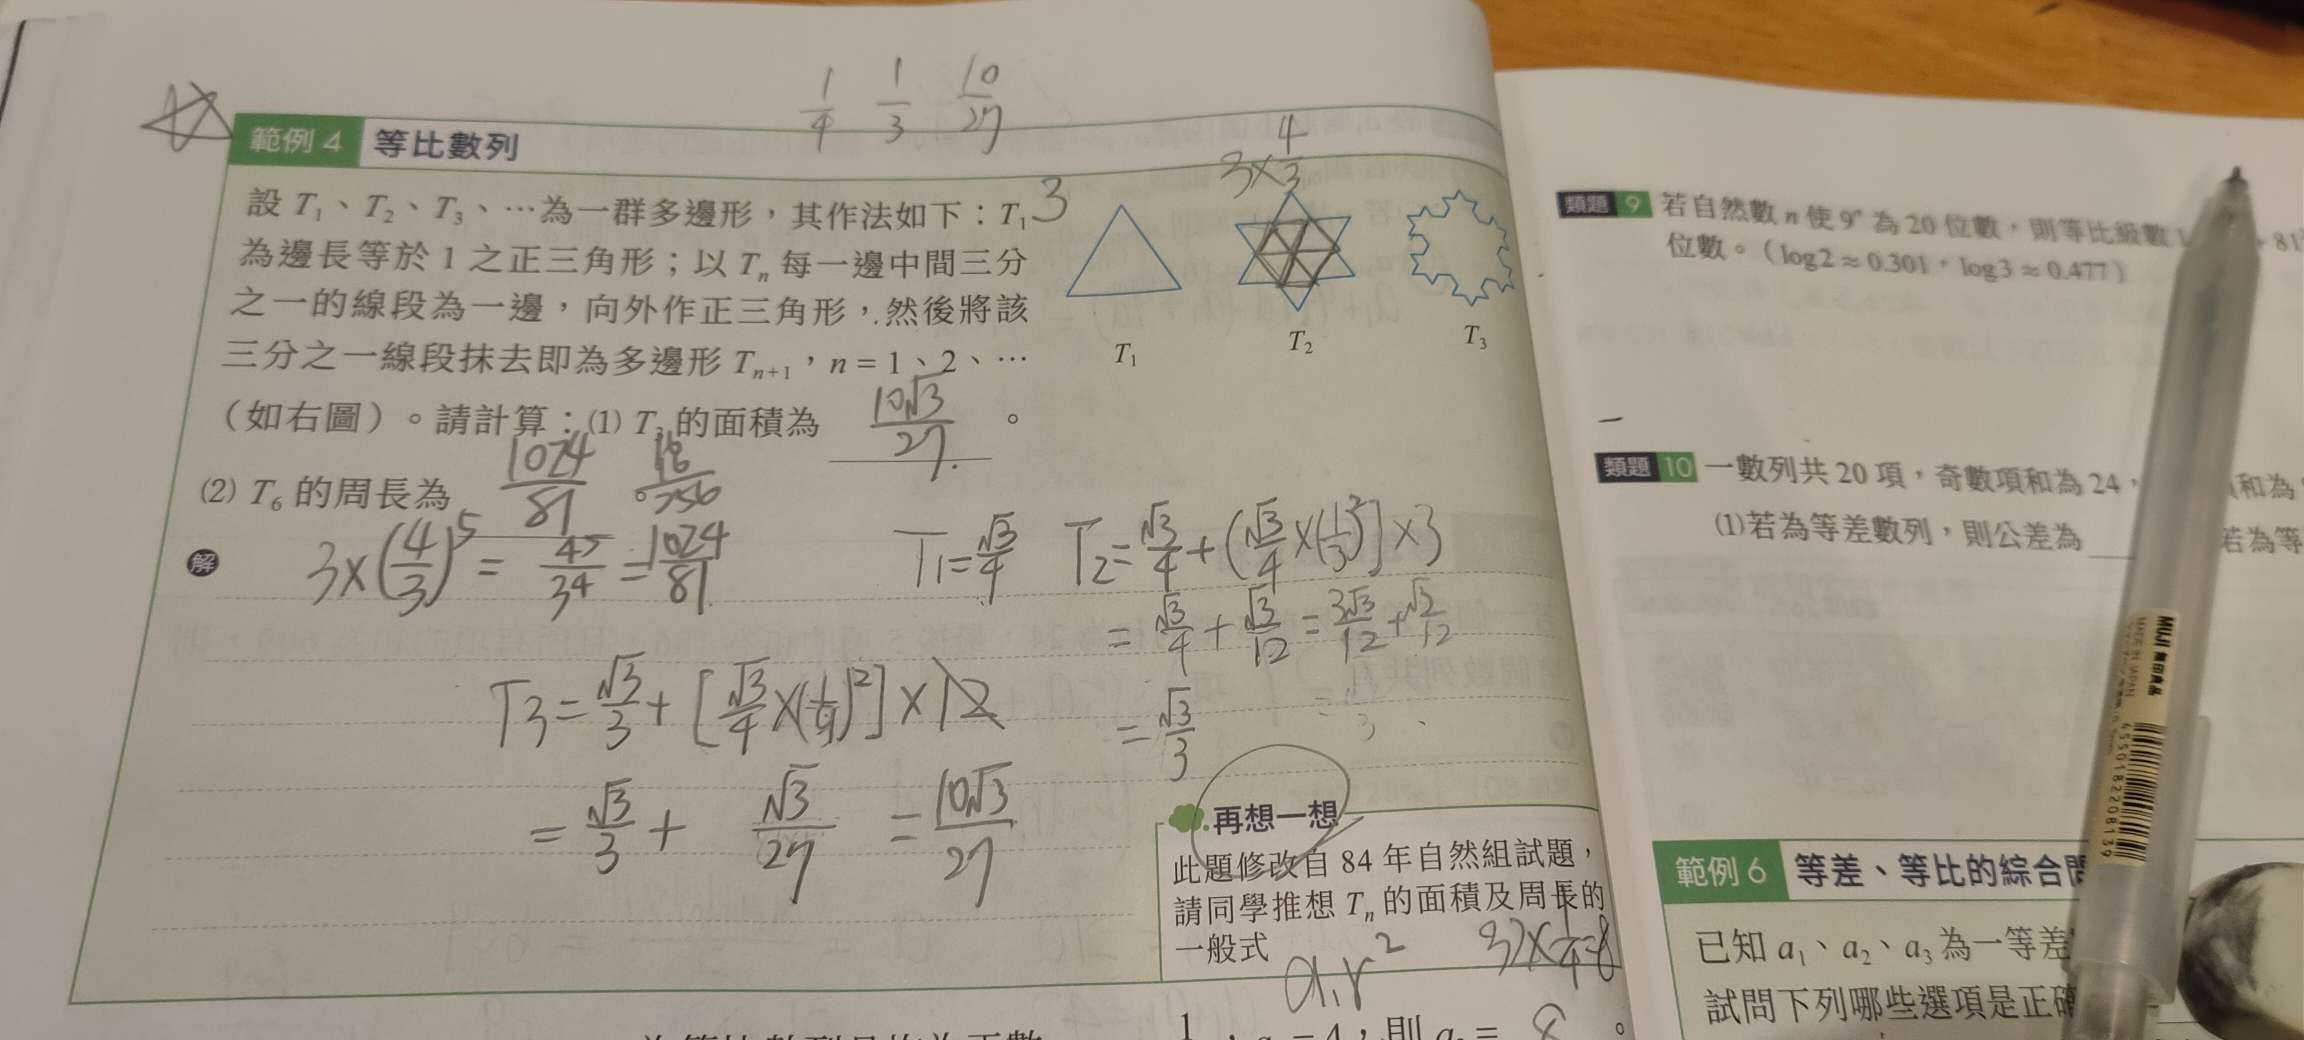 1/4 1/3 10/27
範例 4 等比數列
設 T₁、T₂、T₃、…為一群多邊形，其作法如下：T₁
為邊長等於 1 之正三角形；以 Tₙ 每一邊中間三分
之一的線段為一邊，向外作正三角形，然後將該
三分之一線段抹去即為多邊形 Tₙ₊₁，n = 1、2、…
（如右圖）。請計算：⑴ T₃ 的面積為 10√3/27 。
⑵ T₆ 的周長為 1024/81 。
3
3×4/3
T₁
T₂
T₃
解
3×(4/3)⁵ = 4⁵/3⁴ = 1024/81
T1=√3/4 T2=√3/4+(√3/4×(1/3)²]×3
=√3/4+√3/12=3√3/12+√3/12
=√3/3
T3=√3/3+[√3/4×(1/9)²]×12
=√3/3+ √3/27 =10√3/27
再想一想
此題修改自 84 年自然組試題，
請同學推想 Tₙ 的面積及周長的
一般式
a₁r²
32×1/4=8
類題 9 若自然數 n 使 9ⁿ 為 20 位數，則等比級數
位數。（log2≈0.301，log3≈0.477）
類題 10 一數列共 20 項，奇數項和為 24，
和為
⑴若為等差數列，則公差為
若為等
MUJI 無印良品
MADE IN JAPAN
4550182208139
範例 6 等差、等比的綜合
已知 a₁、a₂、a₃ 為一等差
試問下列哪些選項是正確
= 4，則 = 8 。